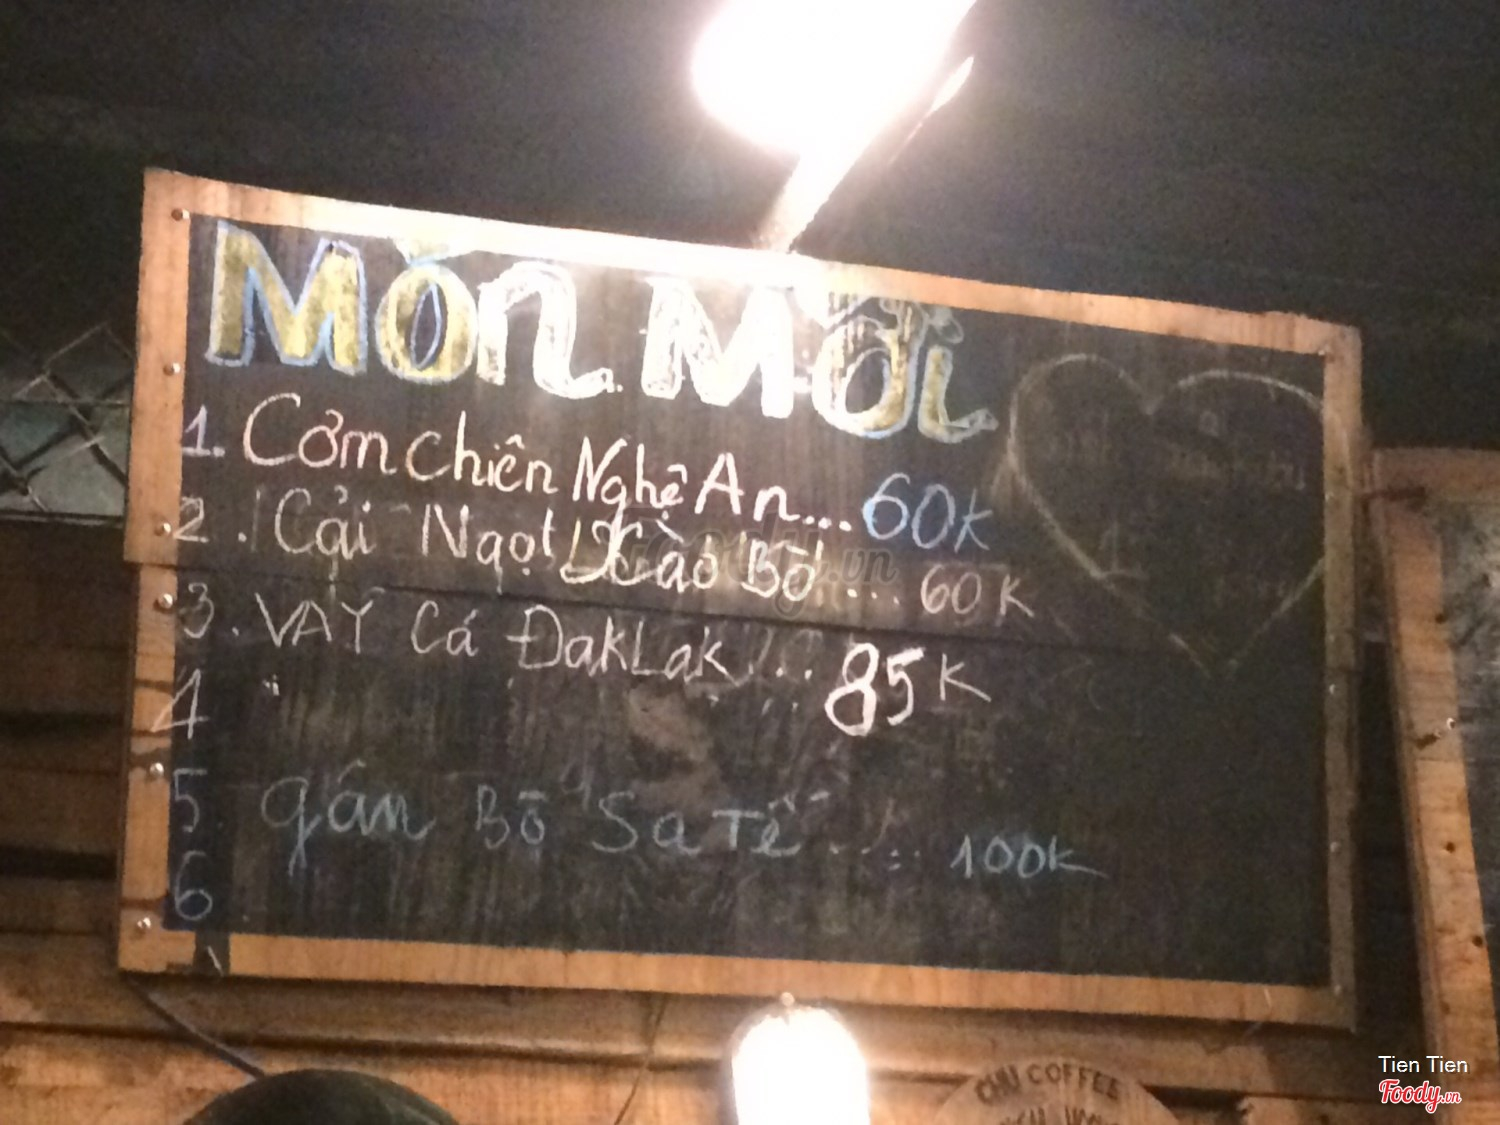 Món Mới
1. Cơm chiên Nghệ An... 60K
2. Cải Ngọt Xào Bò... 60K
3. VAY Cá ĐakLak... 85K
4
5 gân Bò Sa Tế.... 100K
6
Foody.vn
CHU COFFEE
Tien Tien
Foody.vn